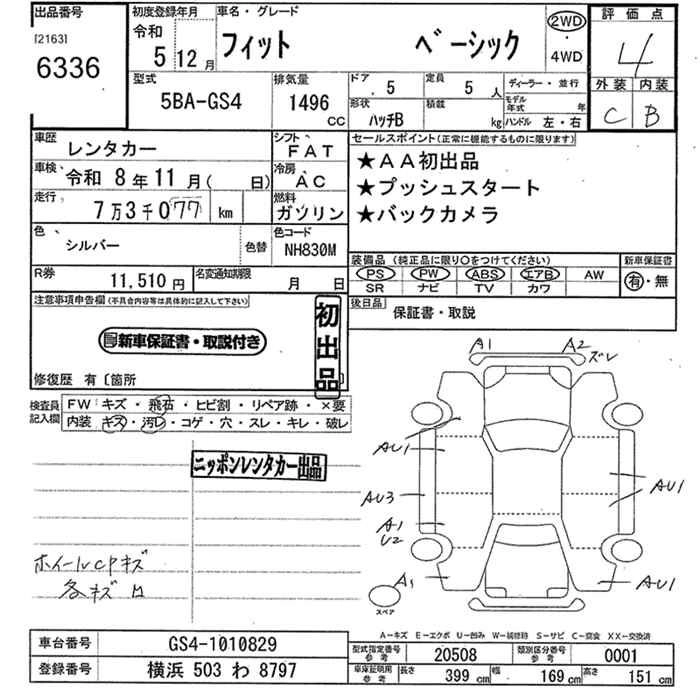 出品番号
[2163]
6336
初度登録年月
令和
5 12月
車名・グレード
フィット ベーシック
2WD
・
4WD
評価点
4
外装 内装
C B
型式
5BA-GS4
排気量
1496
CC
ドア
5
定員
5 人
ディーラー・並行
形状
ハッチB
積載
kg
モデル年式 年
ハンドル 左・右
車歴
レンタカー
シフト
FAT
車検
令和 8年11月( 日)
冷房
AC
走行
7万3千077 km
燃料
ガソリン
色
シルバー
色替
色コード
NH830M
R券
11,510円
名変通知期限
月 日
セールスポイント(正常に機能するものに限ります)
★AA初出品
★プッシュスタート
★バックカメラ
装備品 (純正品に限り○をつけてください)
PS PW ABS エアB AW
SR ナビ TV カワ
新車保証書
有・無
後日品
保証書・取説
注意事項申告欄(不具合内容等は具体的に記入して下さい)
新車保証書・取説付き
初出品
修復歴 有〔箇所
検査員記入欄
FW:キズ・飛石・ヒビ割・リペア跡・×要
内装 キズ・汚レ・コゲ・穴・スレ・キレ・破レ
ニッポンレンタカー出品
ホイールCPキズ
各キズ
A1
A2
ズレ
AU1
AU3
AU1
A1
U2
A1
AU1
スペア
A-キズ E-エクボ U-凹み W-補修跡 S-サビ C-腐食 XX-交換済
車台番号
GS4-1010829
登録番号
横浜 503 わ 8797
型式指定番号
参考
20508
類別区分番号
参考
0001
車庫証明用
参考
長さ
399 cm
幅
169 cm
高さ
151 cm